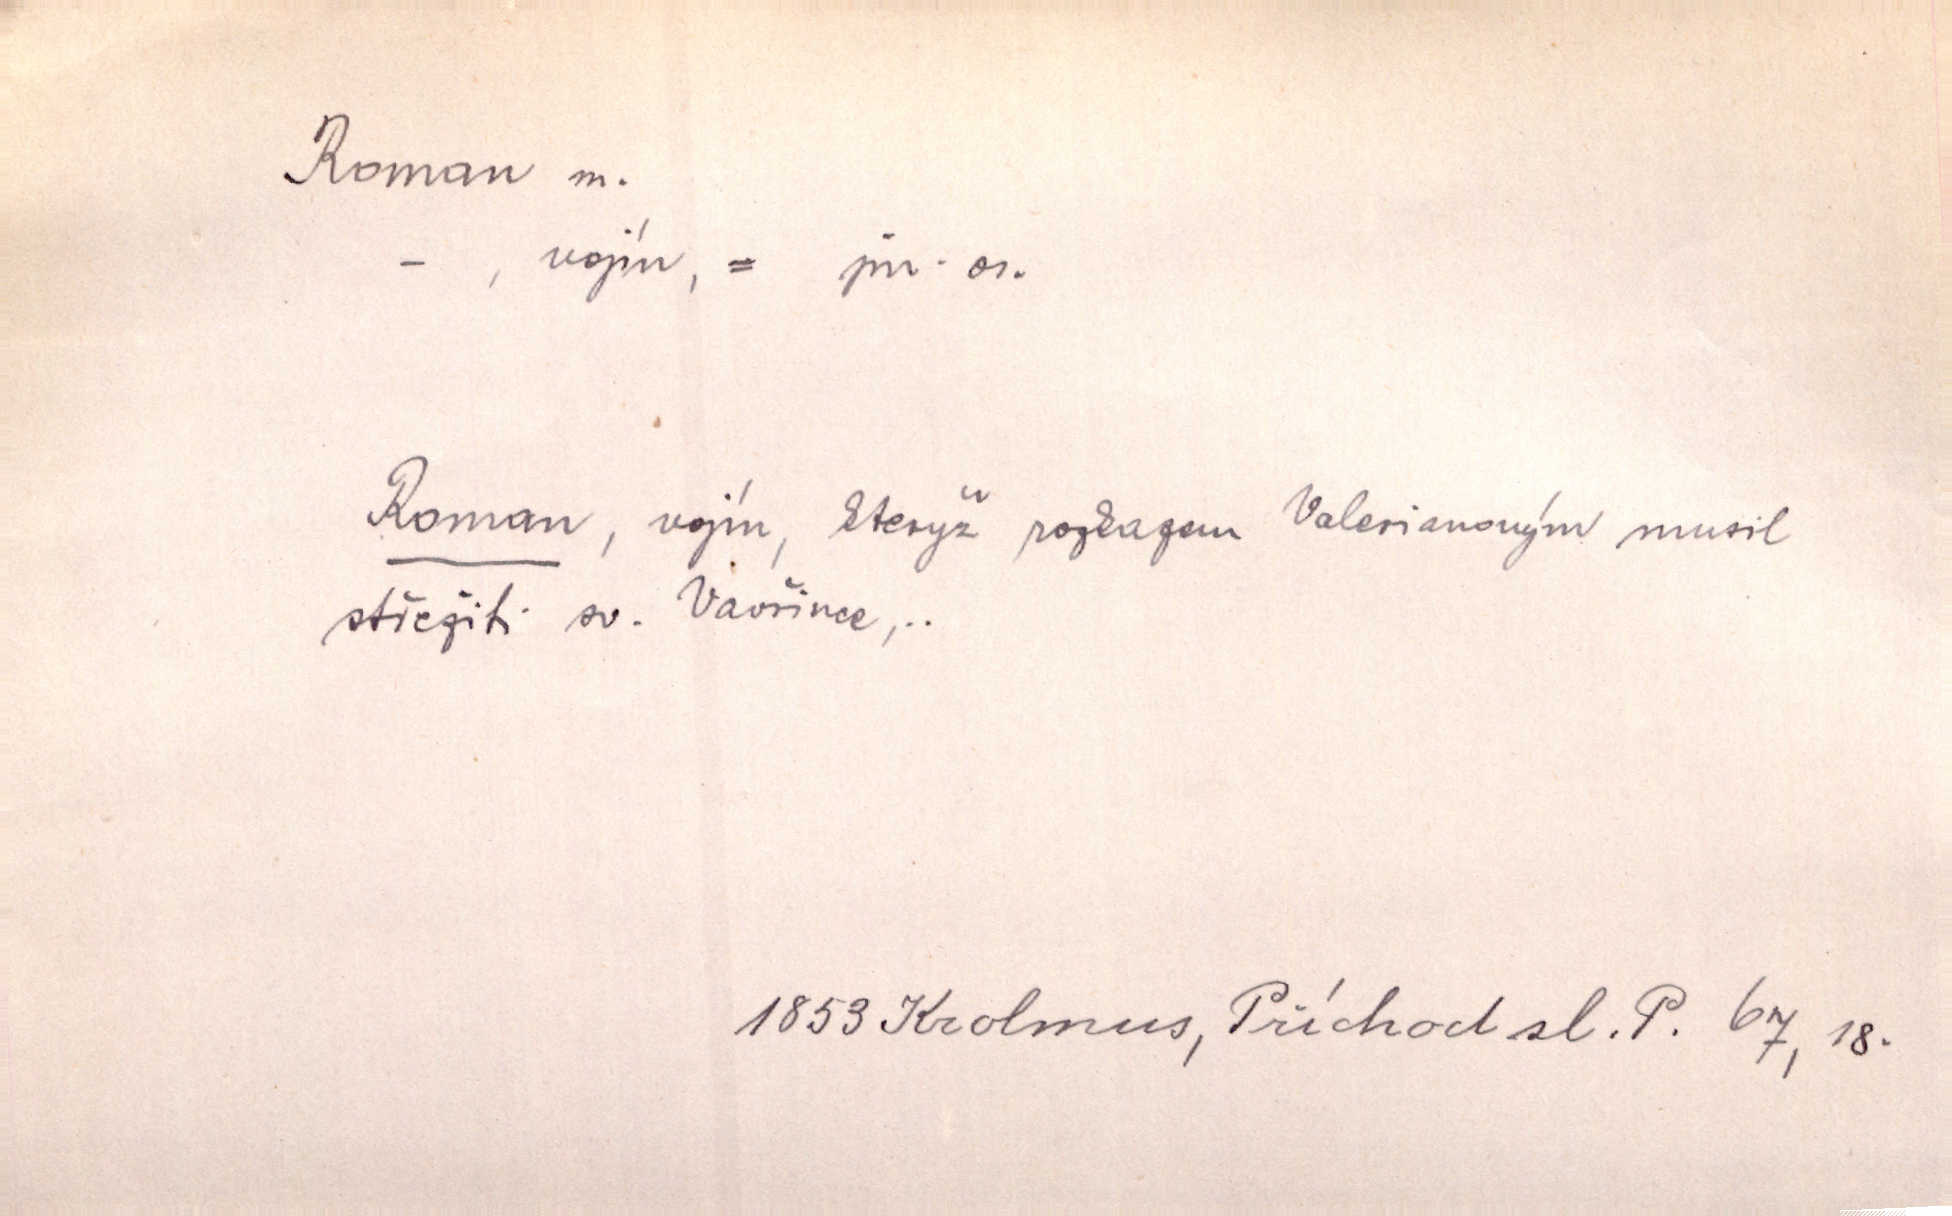 Roman m.
- , vojín, = jm. os.
Roman, vojín, kterýž rozkazem Valerianovým musil
střežiti sv. Vavřince,..
1853 Krolmus, Příchod sl. P. 67, 18.